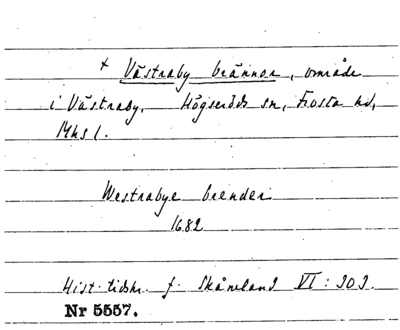 + Västraby brännor, område
i Västraby, Högseröds sn, Frosta hd,
Mhs l.
Westrabye brender
1682
Hist. tidskr. f. Skåneland VI : 303.
Nr 5557.